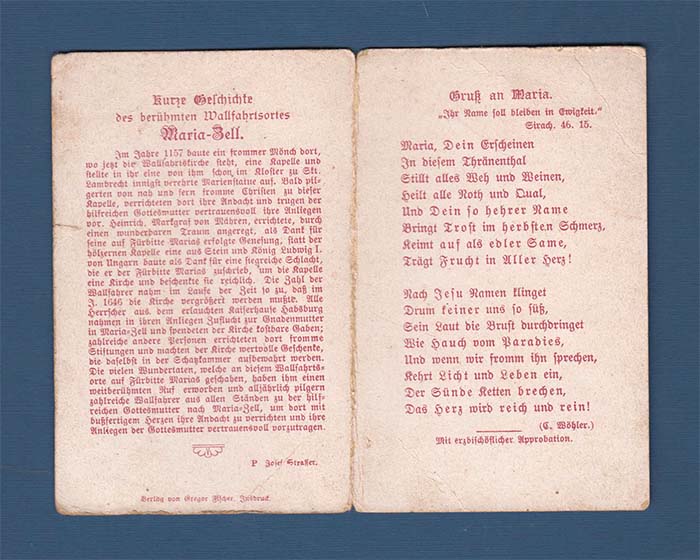 Kurze Geschichte
des berühmten Wallfahrtsortes
Maria-Zell.
Im Jahre 1157 baute ein frommer Mönch dort,
wo jetzt die Wallfahrtskirche steht, eine Kapelle und
stellte in ihr eine von ihm schon im Kloster zu Skt.
Lambrecht innigst verehrte Marienstatue auf. Bald pil-
gerten von nah und fern fromme Christen zu dieser
Kapelle, verrichteten dort ihre Andacht und trugen der
hilfreichen Gottesmutter vertrauensvoll ihre Anliegen
vor. Heinrich, Markgraf von Mähren, errichtete, durch
einen wunderbaren Traum angeregt, als Dank für
seine auf Fürbitte Marias erfolgte Genesung, statt der
hölzernen Kapelle eine aus Stein und König Ludwig I.
von Ungarn baute als Dank für eine siegreiche Schlacht,
die er der Fürbitte Marias zuschrieb, um die Kapelle
eine Kirche und beschenkte sie reichlich. Die Zahl der
Wallfahrer nahm im Laufe der Zeit so zu, daß im
J. 1646 die Kirche vergrößert werden mußte. Alle
Herrscher aus dem erlauchten Kaiserhause Habsburg
nahmen in ihren Anliegen Zuflucht zur Gnadenmutter
in Maria-Zell und spendeten der Kirche kostbare Gaben;
zahlreiche andere Personen errichteten dort fromme
Stiftungen und machten der Kirche wertvolle Geschenke,
die daselbst in der Schatzkammer aufbewahrt werden.
Die vielen Wundertaten, welche an diesem Wallfahrts-
orte auf Fürbitte Marias geschahen, haben ihm einen
weitberühmten Ruf erworben und alljährlich pilgern
zahlreiche Wallfahrer aus allen Ständen zu der hilf-
reichen Gottesmutter nach Maria-Zell, um dort mit
bußfertigem Herzen ihre Andacht zu verrichten und ihre
Anliegen der Gottesmutter vertrauensvoll vorzutragen.
P Josef Strasser.
Verlag von Gregor Fischer, Innsbruck.
Gruß an Maria.
„Ihr Name soll bleiben in Ewigkeit."
Sirach. 46. 15.
Maria, Dein Erscheinen
In diesem Thränenthal
Stillt alles Weh und Weinen,
Heilt alle Noth und Qual,
Und Dein so hehrer Name
Bringt Trost im herbsten Schmerz,
Keimt auf als edler Same,
Trägt Frucht in Aller Herz!
Nach Jesu Namen klinget
Drum keiner uns so süß,
Sein Laut die Brust durchdringet
Wie Hauch vom Paradies,
Und wenn wir fromm ihn sprechen,
Kehrt Licht und Leben ein,
Der Sünde Ketten brechen,
Das Herz wird reich und rein!
(C. Wöhler.)
Mit erzbischöflicher Approbation.